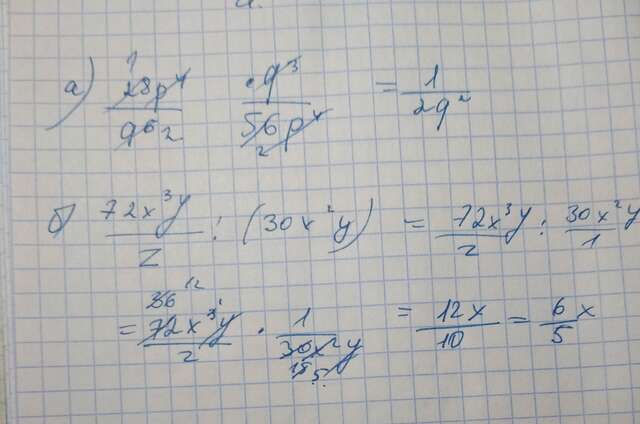 а) 28p⁴/q⁶2 · q³/56p⁴ = 1/2q² 1 2
б) 72x³y/z : (30x²y) = 72x³y/z : 30x²y/1
36 12
= 72x³y/z · 1/30x²y = 12x/10 = 6/5 x
15 5